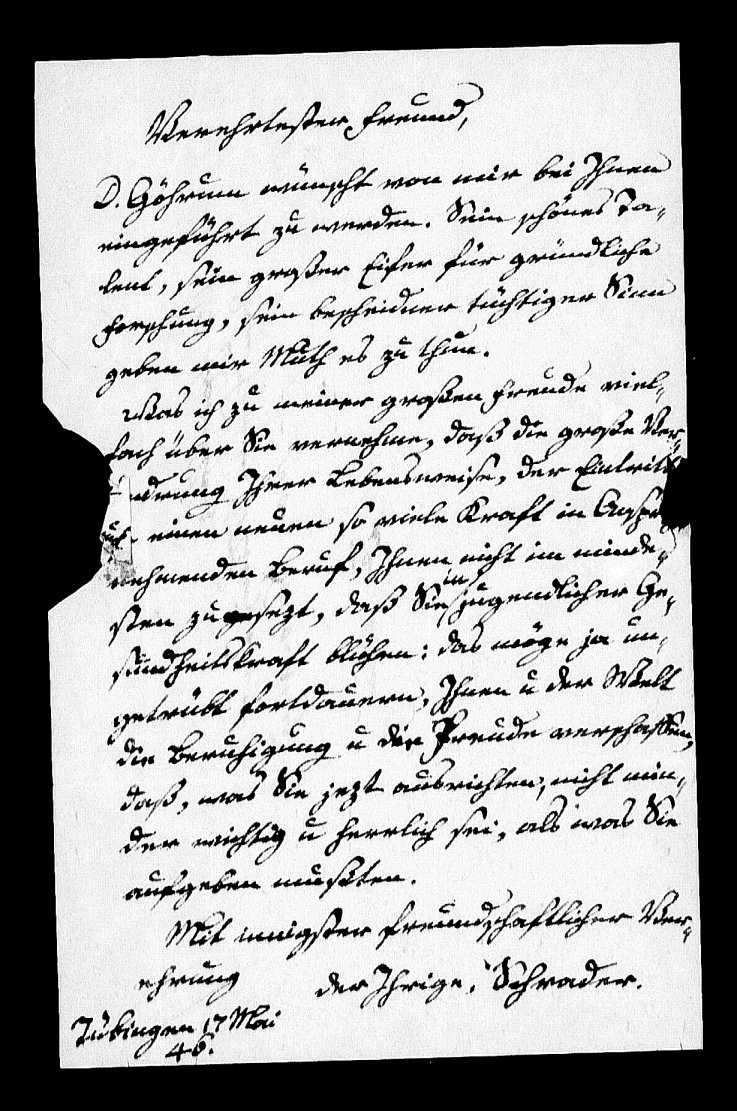 Verehrtester Freund,
D. Göhrum wünscht von mir bei Ihnen
eingeführt zu werden. Sein schönes Ta-
lent, sein großer Eifer für gründliche
Forschung, sein bescheidner tüchtiger Sinn
geben mir Muth es zu thun.
Was ich zu meiner großen Freude viel-
fach über Sie vernehme, daß die große Ver-
ndrung Ihrer Lebensweise, der Eintritt
einen neuen so viele Kraft in Anspr
nehmenden Beruf, Ihnen nicht im minde-
sten zugesezt, daß Sie in jugendlicher Ge-
sundheitskraft blühen: das möge ja un-
getrübt fortdauern, Ihnen u der Welt
die Beruhigung u die Freude verschaffen,
daß, was Sie jezt ausrichten, nicht min-
der wichtig u herrlich sei, als was Sie
aufgeben mußten.
Mit innigster freundschaftlicher Ver-
ehrung der Ihrige, Schrader.
Tübingen 17 Mai
46.